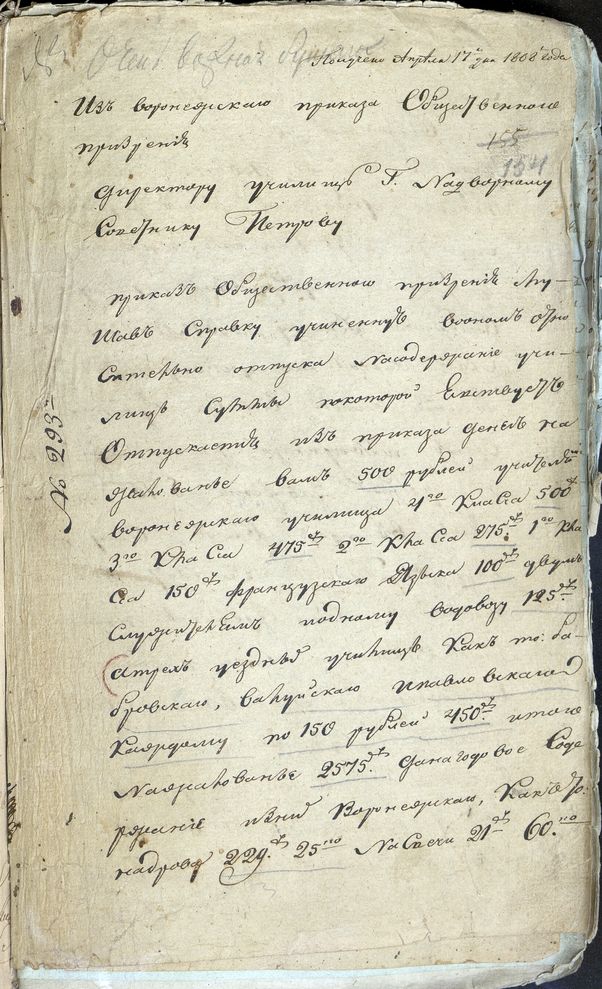 Получено Апреля 17 дня 1808 года
Изъ воронежскаго приказа Общественнаго
призрѣнія
155
154
Директору училищъ Г. Надворному
Советнику Петрову
приказъ Общественнаго призрѣнія слу-
шавъ Справку учиненную воономъ отно
сительно отпуска насодержаніе учи-
лищъ Суммы покоторой
Отпускается изъ приказа денегъ на
жалованье вамъ 500 рублей учителямъ
воронежскаго училища 4го Класса 500
3го Класса 475 2го Класса 275 1го Кла
сса 150 французскаго Языка 100 двумъ
Служителямъ иодному водовозу 125
атрехъ уездныхъ училищъ Какъ то: бо-
бровскаго, валуйскаго ипавловскаго
Каждому по 150 рублей 450 итого
Нажалованье 2575. Данагодовое Соде
ржаніе Воронежскаго, Какъ то
надрова 229. 25 НаСвечи 21 60.
№ 293